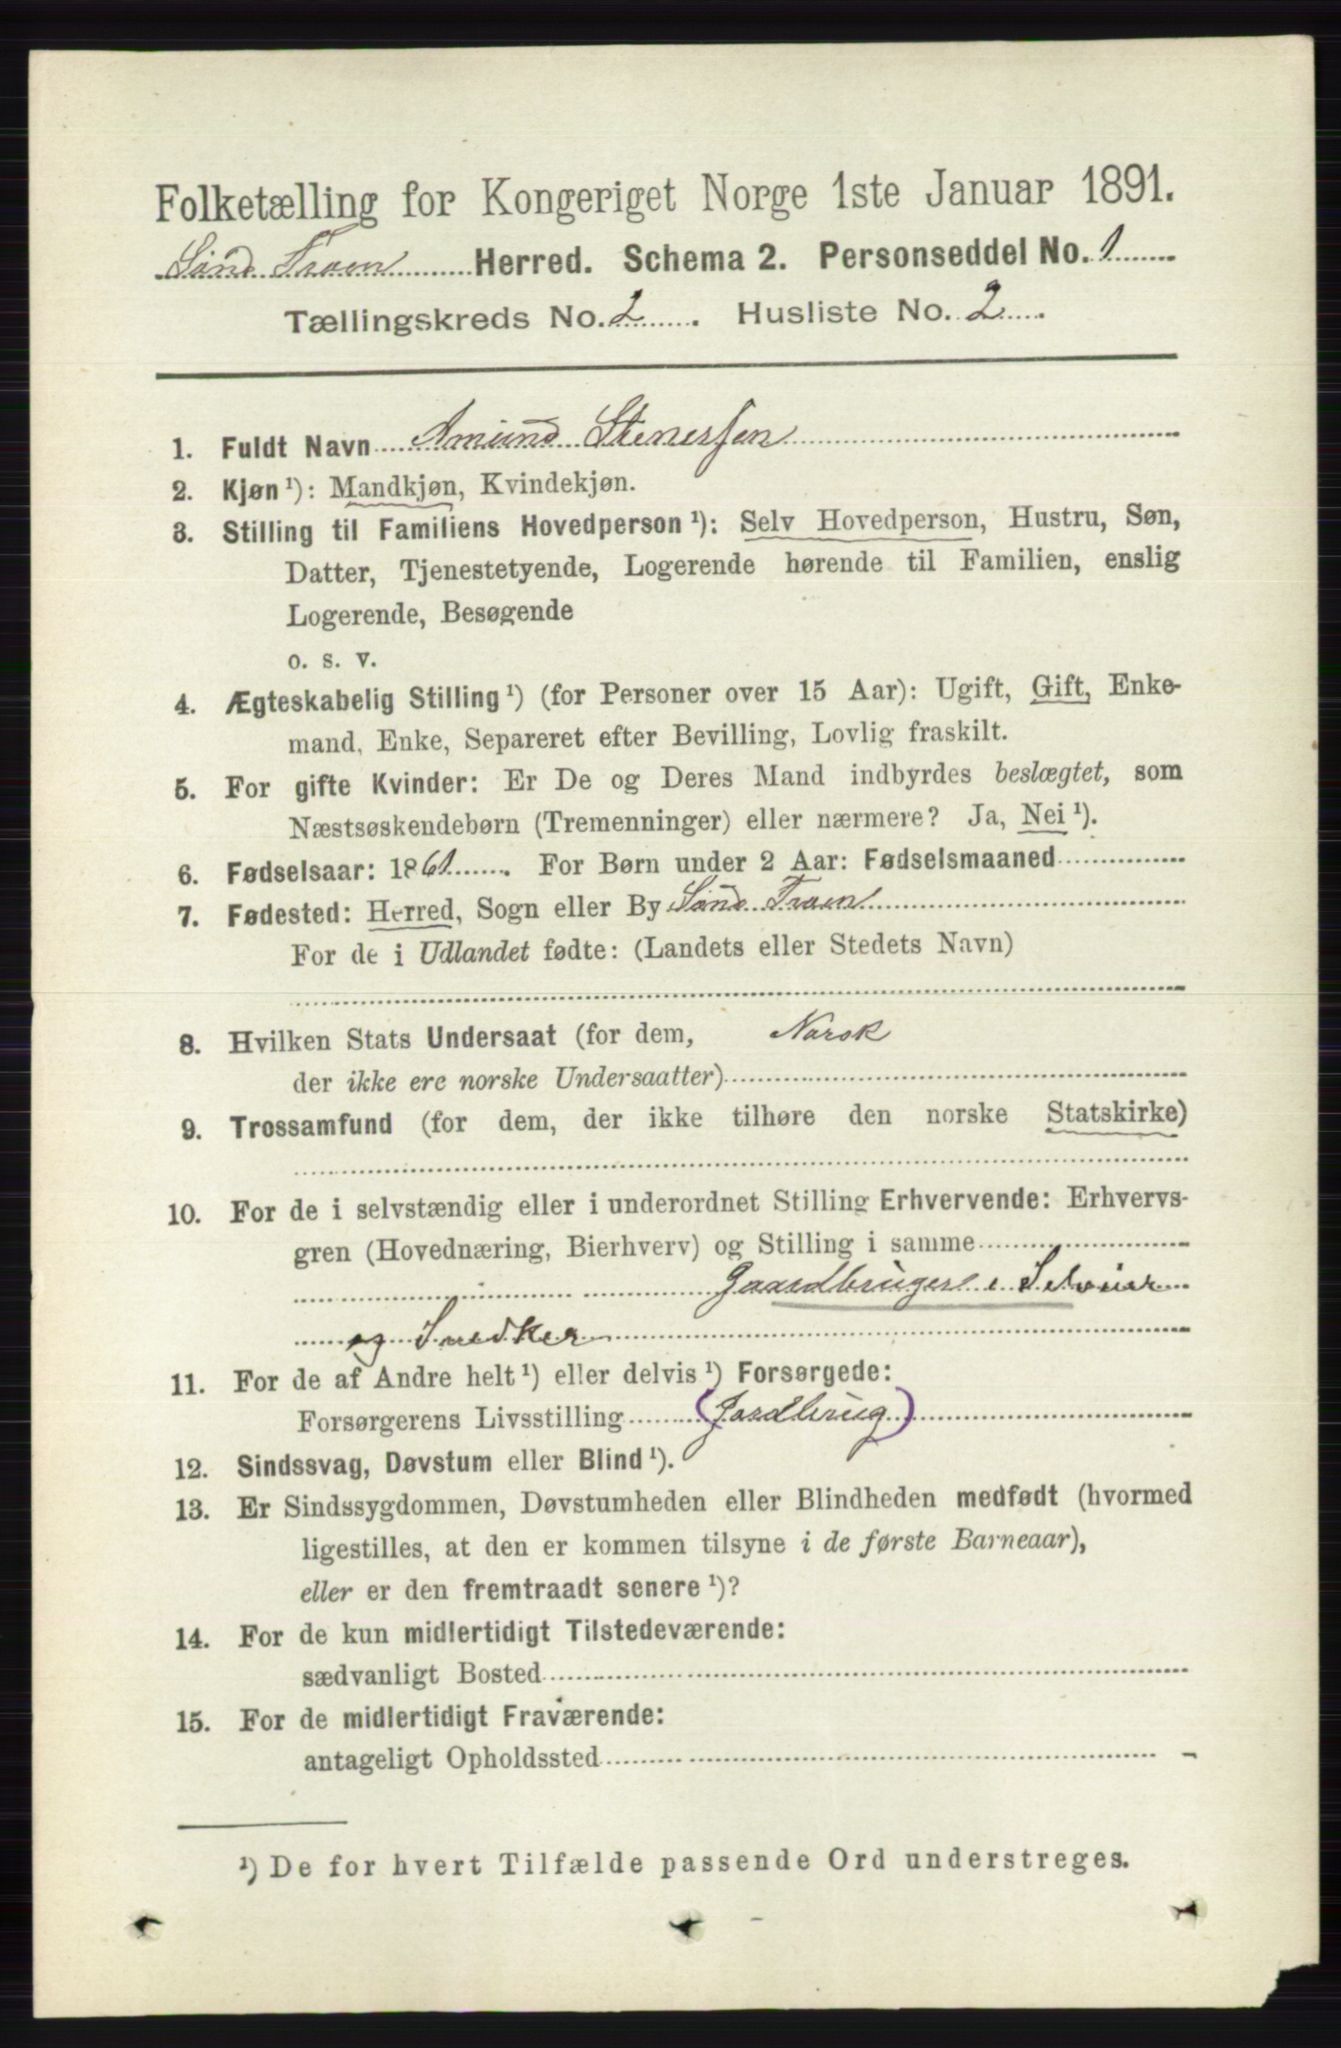 Folketælling for Kongeriget Norge 1ste Januar 1891.
Sønd. Fron Herred. Schema 2. Personseddel No. 1
Tællingskreds No. 2. Husliste No. 2
1. Fuldt Navn Amund Stenersen
2. Kjøn ¹): Mandkjøn, Kvindekjøn.
3. Stilling til Familiens Hovedperson ¹): Selv Hovedperson, Hustru, Søn,
Datter, Tjenestetyende, Logerende hørende til Familien, enslig
Logerende, Besøgende
o. s. v.
4. Ægteskabelig Stilling ¹) (for Personer over 15 Aar): Ugift, Gift, Enke-
mand, Enke, Separeret efter Bevilling, Lovlig fraskilt.
5. For gifte Kvinder: Er De og Deres Mand indbyrdes beslægtet, som
Næstsøskendebørn (Tremenninger) eller nærmere? Ja, Nei ¹).
6. Fødselsaar: 1861. For Børn under 2 Aar: Fødselsmaaned
7. Fødested: Herred, Sogn eller By Sønd. Fron
For de i Udlandet fødte: (Landets eller Stedets Navn)
8. Hvilken Stats Undersaat (for dem, Norsk
der ikke ere norske Undersaatter)
9. Trossamfund (for dem, der ikke tilhøre den norske Statskirke)
10. For de i selvstændig eller i underordnet Stilling Erhvervende: Erhvervs-
gren (Hovednæring, Bierhverv) og Stilling i samme
Gaardbruger Seleier
og Snedker
11. For de af Andre helt ¹) eller delvis ¹) Forsørgede:
Forsørgerens Livsstilling (Jordbrug)
12. Sindssvag, Døvstum eller Blind ¹).
13. Er Sindssygdommen, Døvstumheden eller Blindheden medfødt (hvormed
ligestilles, at den er kommen tilsyne i de første Barneaar),
eller er den fremtraadt senere ¹)?
14. For de kun midlertidigt Tilstedeværende:
sædvanligt Bosted
15. For de midlertidigt Fraværende:
antageligt Opholdssted
¹) De for hvert Tilfælde passende Ord understreges.